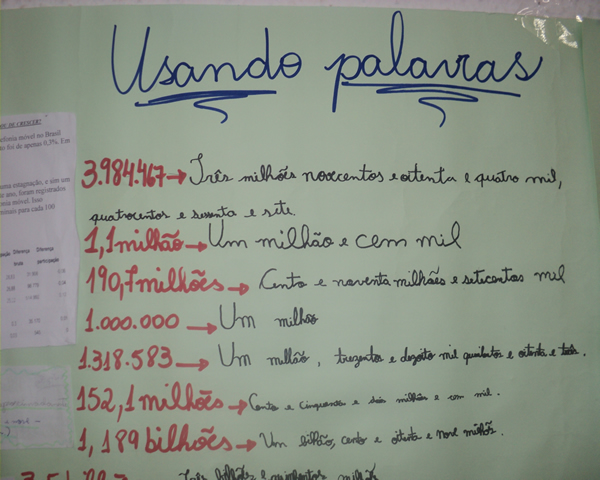 Usando palavras
3.984.467 → Três milhões novecentos e oitenta e quatro mil,
quatrocentos e sessenta e sete.
1,1 milhão → Um milhão e cem mil
190,7 milhões → Cento e noventa milhões e setecentos mil
1.000.000 → Um milhão
1.318.583 → Um milhão, trezentos e dezoito mil quinhentos e oitenta e três.
152,1 milhões → Cento e cinquenta e dois milhões e cem mil.
1,189 bilhões → Um bilhão, cento e oitenta e nove milhões.
DE DE CRESCER?
efonia móvel no Brasil
foi de apenas 0,3%. Em
uma estagnação, e sim um
e ano, foram registrados
nia móvel. Isso
para cada 100
Diferença
participação